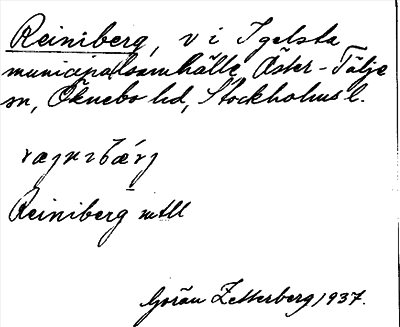 Reiniberg, v i Igelsta
municipalsamhälle, Öster-Tälje
sn, Öknebo hd, Stockholms l.
Reiniberg mtll
Göran Zetterberg 1937.